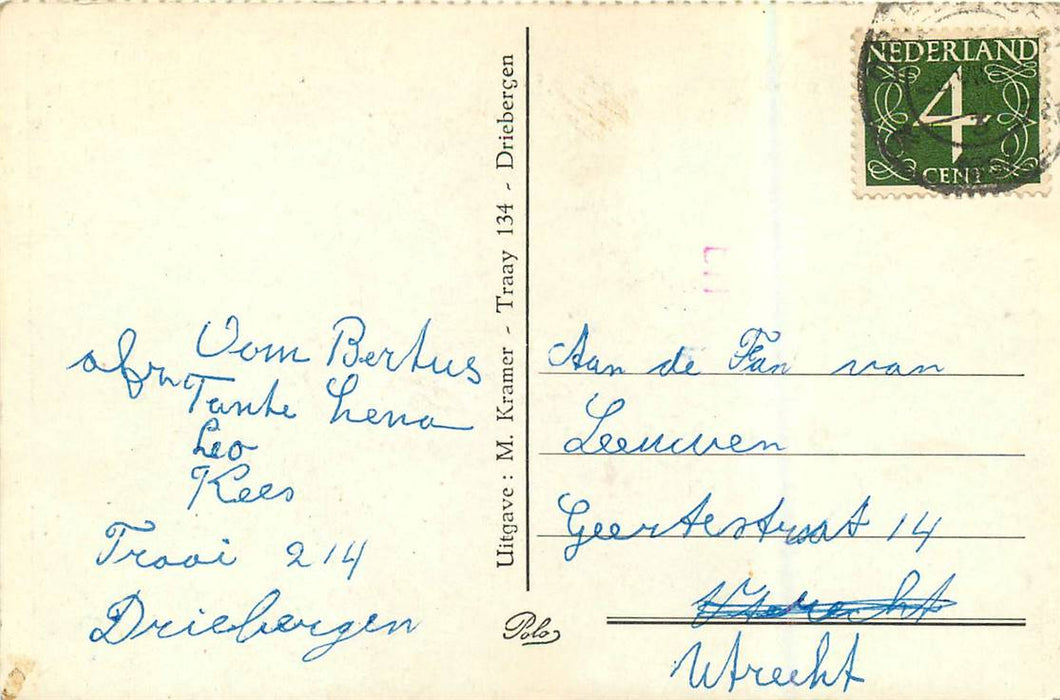 afz Oom Bertus
Tante Lena
Leo
Kees
Traai 214
Driebergen
Uitgave: M. Kramer - Traay 134 - Driebergen
Polo
NEDERLAND
4
CENT
Aan de Fan van
Leeuwen
Geertestraat 14
Utrecht
Utrecht